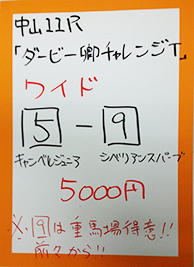 中山11R
「ダービー卿チャレンジT」
ワイド
5 - 9
キャンベルジュニア シベリアンスパーブ
5000円
※・9は重馬場得意!!
前々から!!